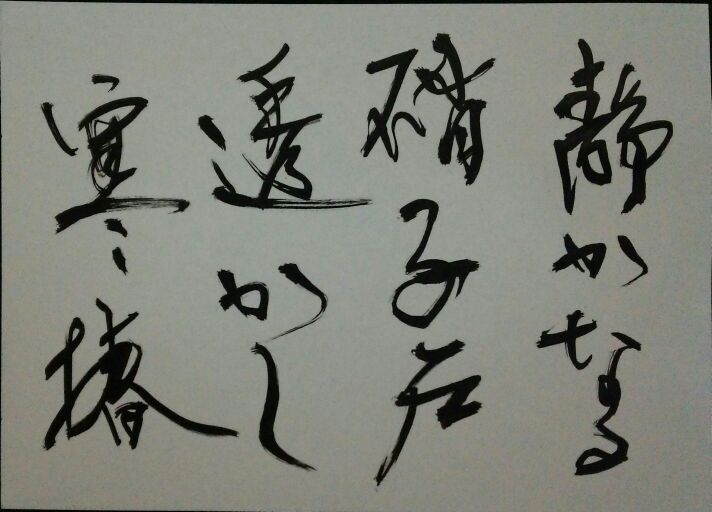 静かなる
硝子戸
透かし
寒椿